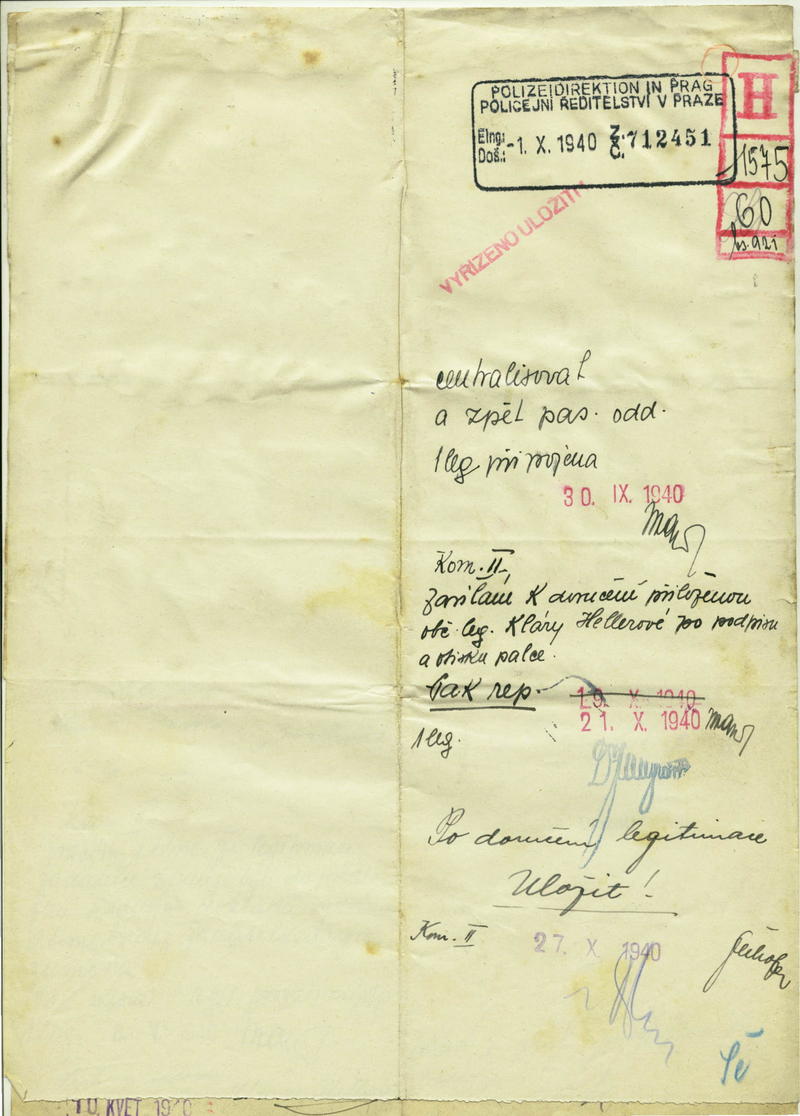 POLIZEIDIREKTION IN PRAG
POLICEJNÍ ŘEDITELSTVÍ V PRAZE
Eing:
Doš.:
-1. X. 1940 Z. Č. 712451
H
1575
60
VYŘÍZENO ULOŽITI
centralisovat
a zpět pas. odd.
1 leg připojena
30. IX. 1940
Kom. II.
Zasílám k doručení přiloženou
obč. leg. Kláry Hellerové po podpisu
a otisku palce.
Pak rep.
19. X. 1940
21. X. 1940
1 leg.
Po doručení legitimace
Uložit!
Kom. II
27. X. 1940
10. KVĚT. 1940